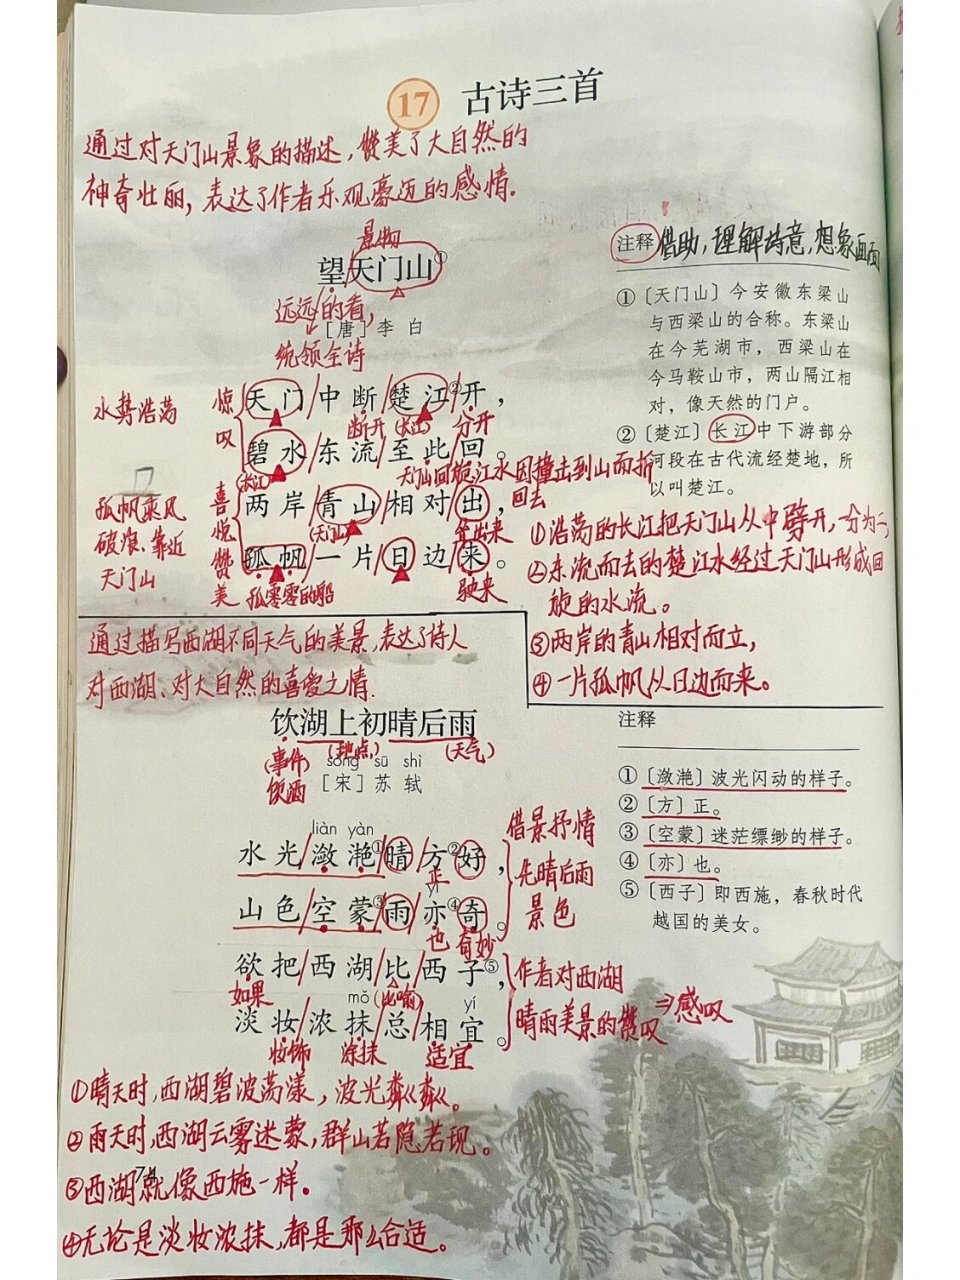 17 古诗三首
通过对天门山景象的描述，赞美了大自然的
神奇壮丽，表达了作者乐观豪迈的感情。
景物
望天门山①
远远的看，
［唐］李 白
统领全诗
注释 借助，理解诗意，想象画面
①〔天门山〕今安徽东梁山
与西梁山的合称。东梁山
在今芜湖市，西梁山在
今马鞍山市，两山隔江相
对，像天然的门户。
②〔楚江〕长江中下游部分
河段在古代流经楚地，所
以叫楚江。
水势浩荡
惊叹
天门/中断/楚江②/开，
断开 (长江) 分开
碧水/东流/至此/回。
(长江) 天门山回旋，江水因撞击到山而折
回去
孤帆乘风
破浪、靠近
天门山
喜悦赞美
两岸/青山/相对/出，
(天门山)
孤帆/一片/日边/来。
孤零零的船 驶来
①浩荡的长江把天门山从中劈开，一分为二，
②东流而去的楚江水经过天门山形成回
旋的水流。
③两岸的青山相对而立，
④一片孤帆从日边而来。
通过描写西湖不同天气的美景，表达了诗人
对西湖、对大自然的喜爱之情.
饮湖上初晴后雨
(事件) (地点) (天气)
饮酒
sòng sū shì
［宋］苏 轼
liàn yàn
水光/潋滟①/晴/方②/好，
正
yì
山色/空蒙③/雨/亦④/奇。
也 奇妙
借景抒情
先晴后雨
景色
欲把/西湖/比/西子⑤，
如果 (比喻)
mǒ yí
淡妆/浓抹/总/相宜。
妆饰 涂抹 适宜
作者对西湖
晴雨美景的赞叹⇒感叹
注释
①〔潋滟〕波光闪动的样子。
②〔方〕正。
③〔空蒙〕迷茫缥缈的样子。
④〔亦〕也。
⑤〔西子〕即西施，春秋时代
越国的美女。
①晴天时，西湖碧波荡漾，波光粼粼。
②雨天时，西湖云雾迷蒙，群山若隐若现。
③西湖就像西施一样.
④无论是淡妆浓抹，都是那么合适。